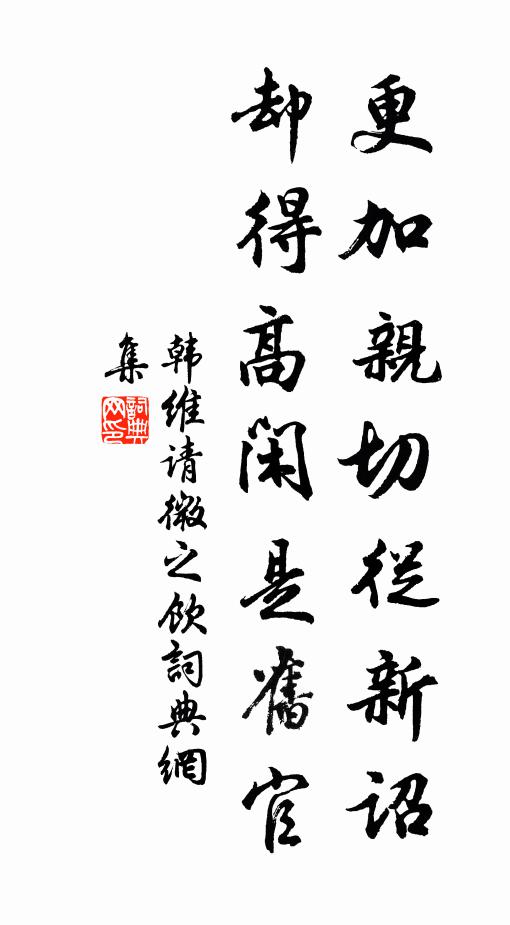 更加親切從新詔
却得高閑是舊官
韩維请微之飲詞典網
集
詞典网印